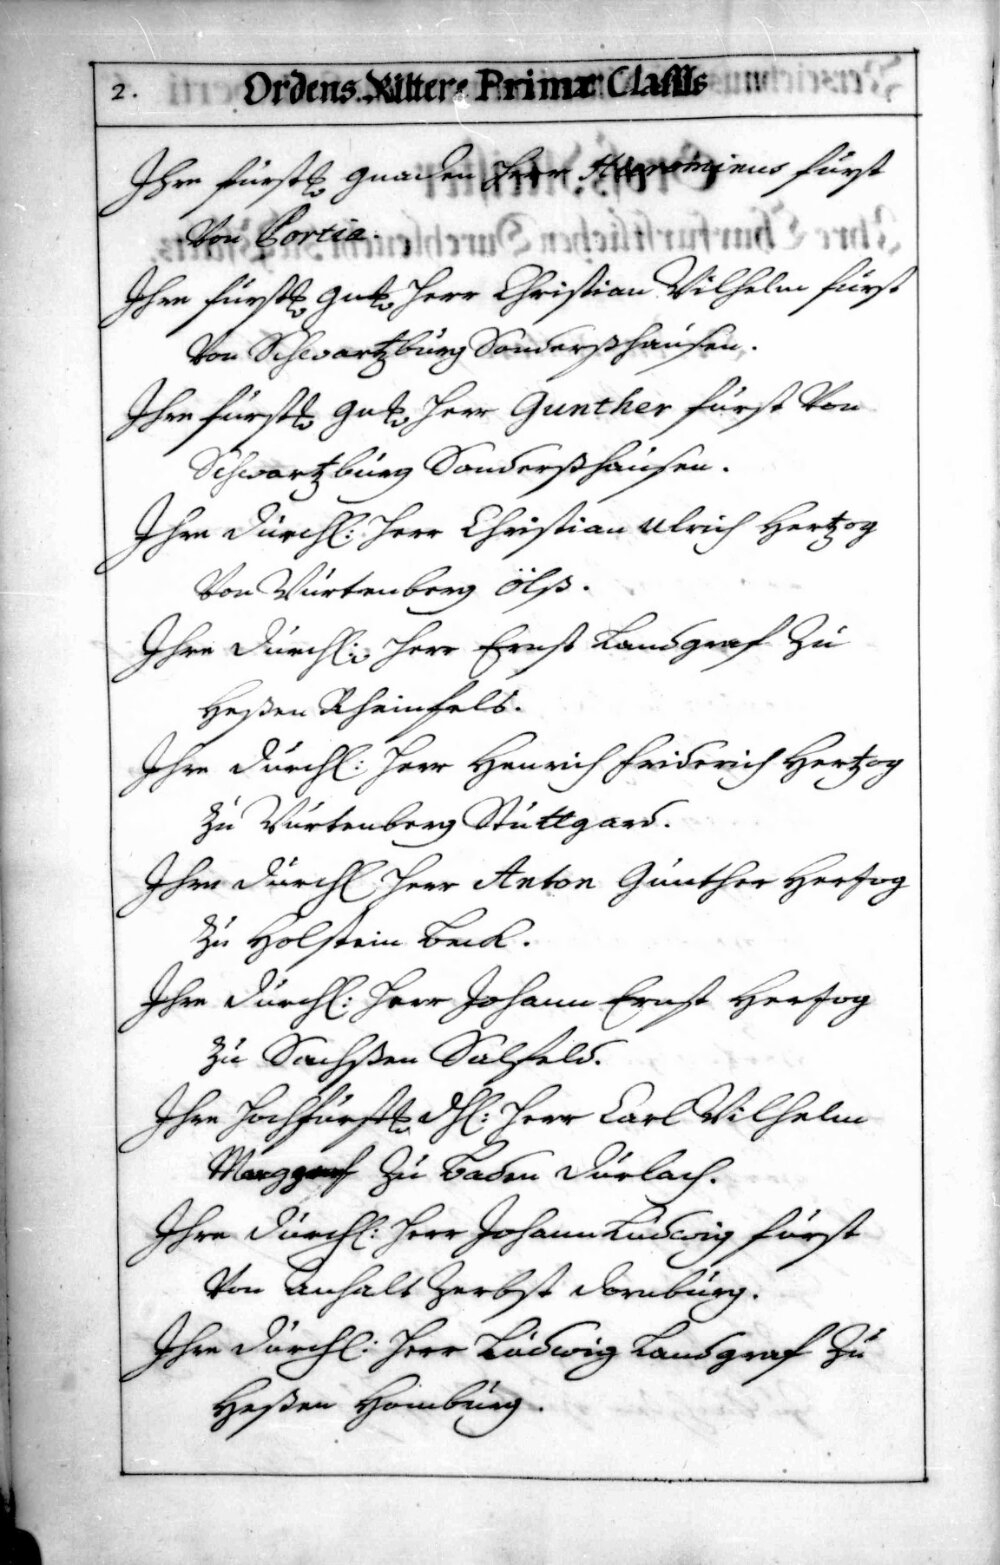 2. Ordens Rittere Primæ Classis
Ihre fürstl. gnaden Herr fürst
Von Portia.
Ihre fürstl. gnd. Herr Christian Wilhelm fürst
Von Schwartzbürg Sonderßhaüsen.
Ihre fürstl. gnd. Herr Gunther fürst Von
Schwartzbürg Sonderßhaüsen.
Ihre Dürchl: Herr Christian Ulrich Hertzog
Von Würtenberg Ölß.
Ihre Dürchl: Herr Ernst Landgraf Zü
Heßen Rheinfels.
Ihre Dürchl: Herr Henrich friderich Hertzog
Zü Würtenberg Stüttgard.
Ihre Dürchl Herr Anton Günther Hertzog
Zü Holstein Beck.
Ihre Dürchl: Herr Johann Ernst Hertzog
Zü Sachßen Salfeld.
Ihre Hochfürstl. Dhl: Herr Carl Wilhelm
Marggraf Zü Baden Dürlach.
Ihre Dürchl: Herr Johann Lüdwig fürst
Von Anhalt Zerbst Dornbürg.
Ihre Dürchl: Herr Lüdwig Landgraf Zü
Heßen Hombürg.